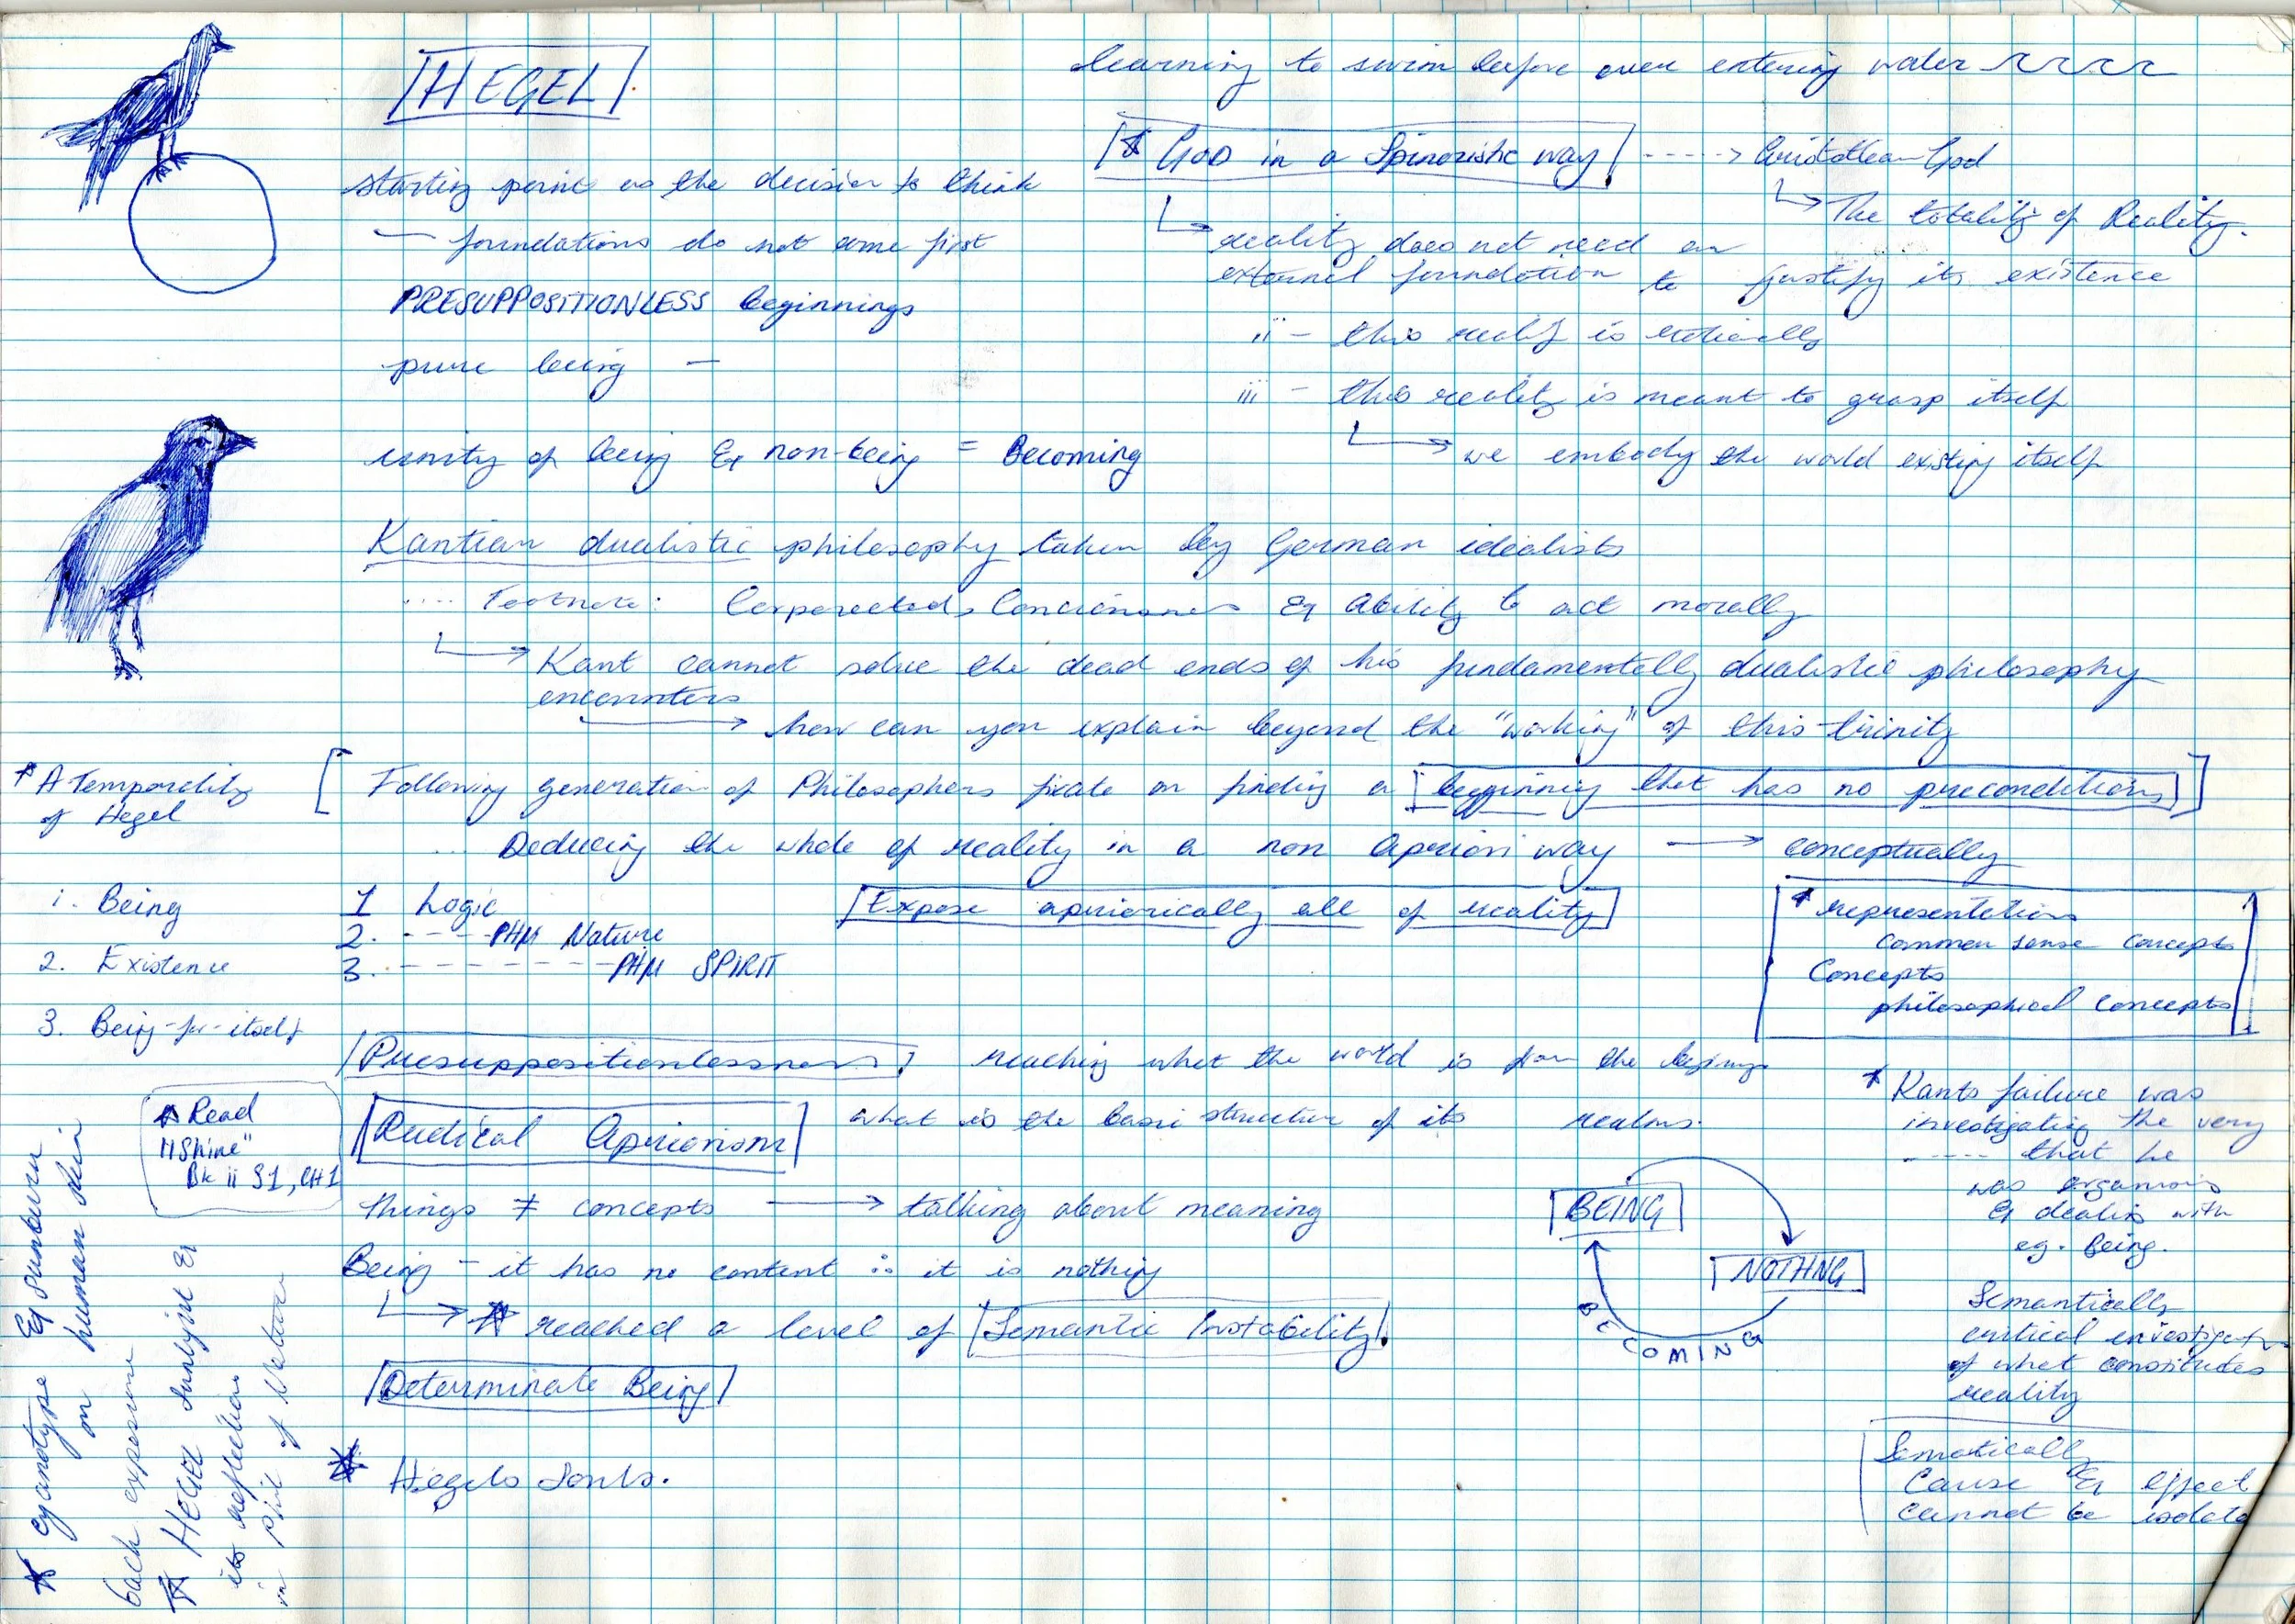 HEGEL
learning to swim before ever entering water
starting point as the decision to think
— foundations do not come first
PRESUPPOSITIONLESS beginnings
pure being —
unity of being & non-being = Becoming
* GOD in a Spinozistic way ----> Aristotlean God
The totality of Reality.
reality does not need an
external foundation to justify its existence
ii - this reality is
iii - this reality is meant to grasp itself
we embody the world existing itself
Kantian dualistic philosophy taken by German idealists
.... Footnote: & ability to act morally
Kant cannot solve the dead ends of his fundamentally dualistic philosophy
encounters
how can you explain beyond the "working" of this trinity
* A Temporality
of Hegel
[Following generation of Philosophers fixate on finding a beginning that has no preconditions]
... Deducing the whole of reality in a non Apriori way → conceptually
i. Being
2. Existence
3. Being-for-itself
1 Logic
2. ----- PHM Nature
3. --------- PHM SPIRIT
Expose apriorically all of reality
* representations
common sense concepts
Concepts
philosophical concepts
Presuppositionlessness reaching what the world is from the beginning
Radical Apriorism what is the basic structure of its realms.
* Read
"Shine"
Bk ii S1, CH1
things ≠ concepts → talking about meaning
Being - it has no content ∴ it is nothing
* reached a level of Semantic Instability!
Determinate Being
* Hegels
BEING
NOTHING
BECOMING
* Kants failure was
investigating the very
----- that he
was
& dealing with
eg. Being.
Semantically
critical
of what constitutes
reality
Cause & effect
cannot be
* cyanotype & sunburn
on human skin
each exposure
* HEGEL sunlight &
its reflection
in Phil of Nature